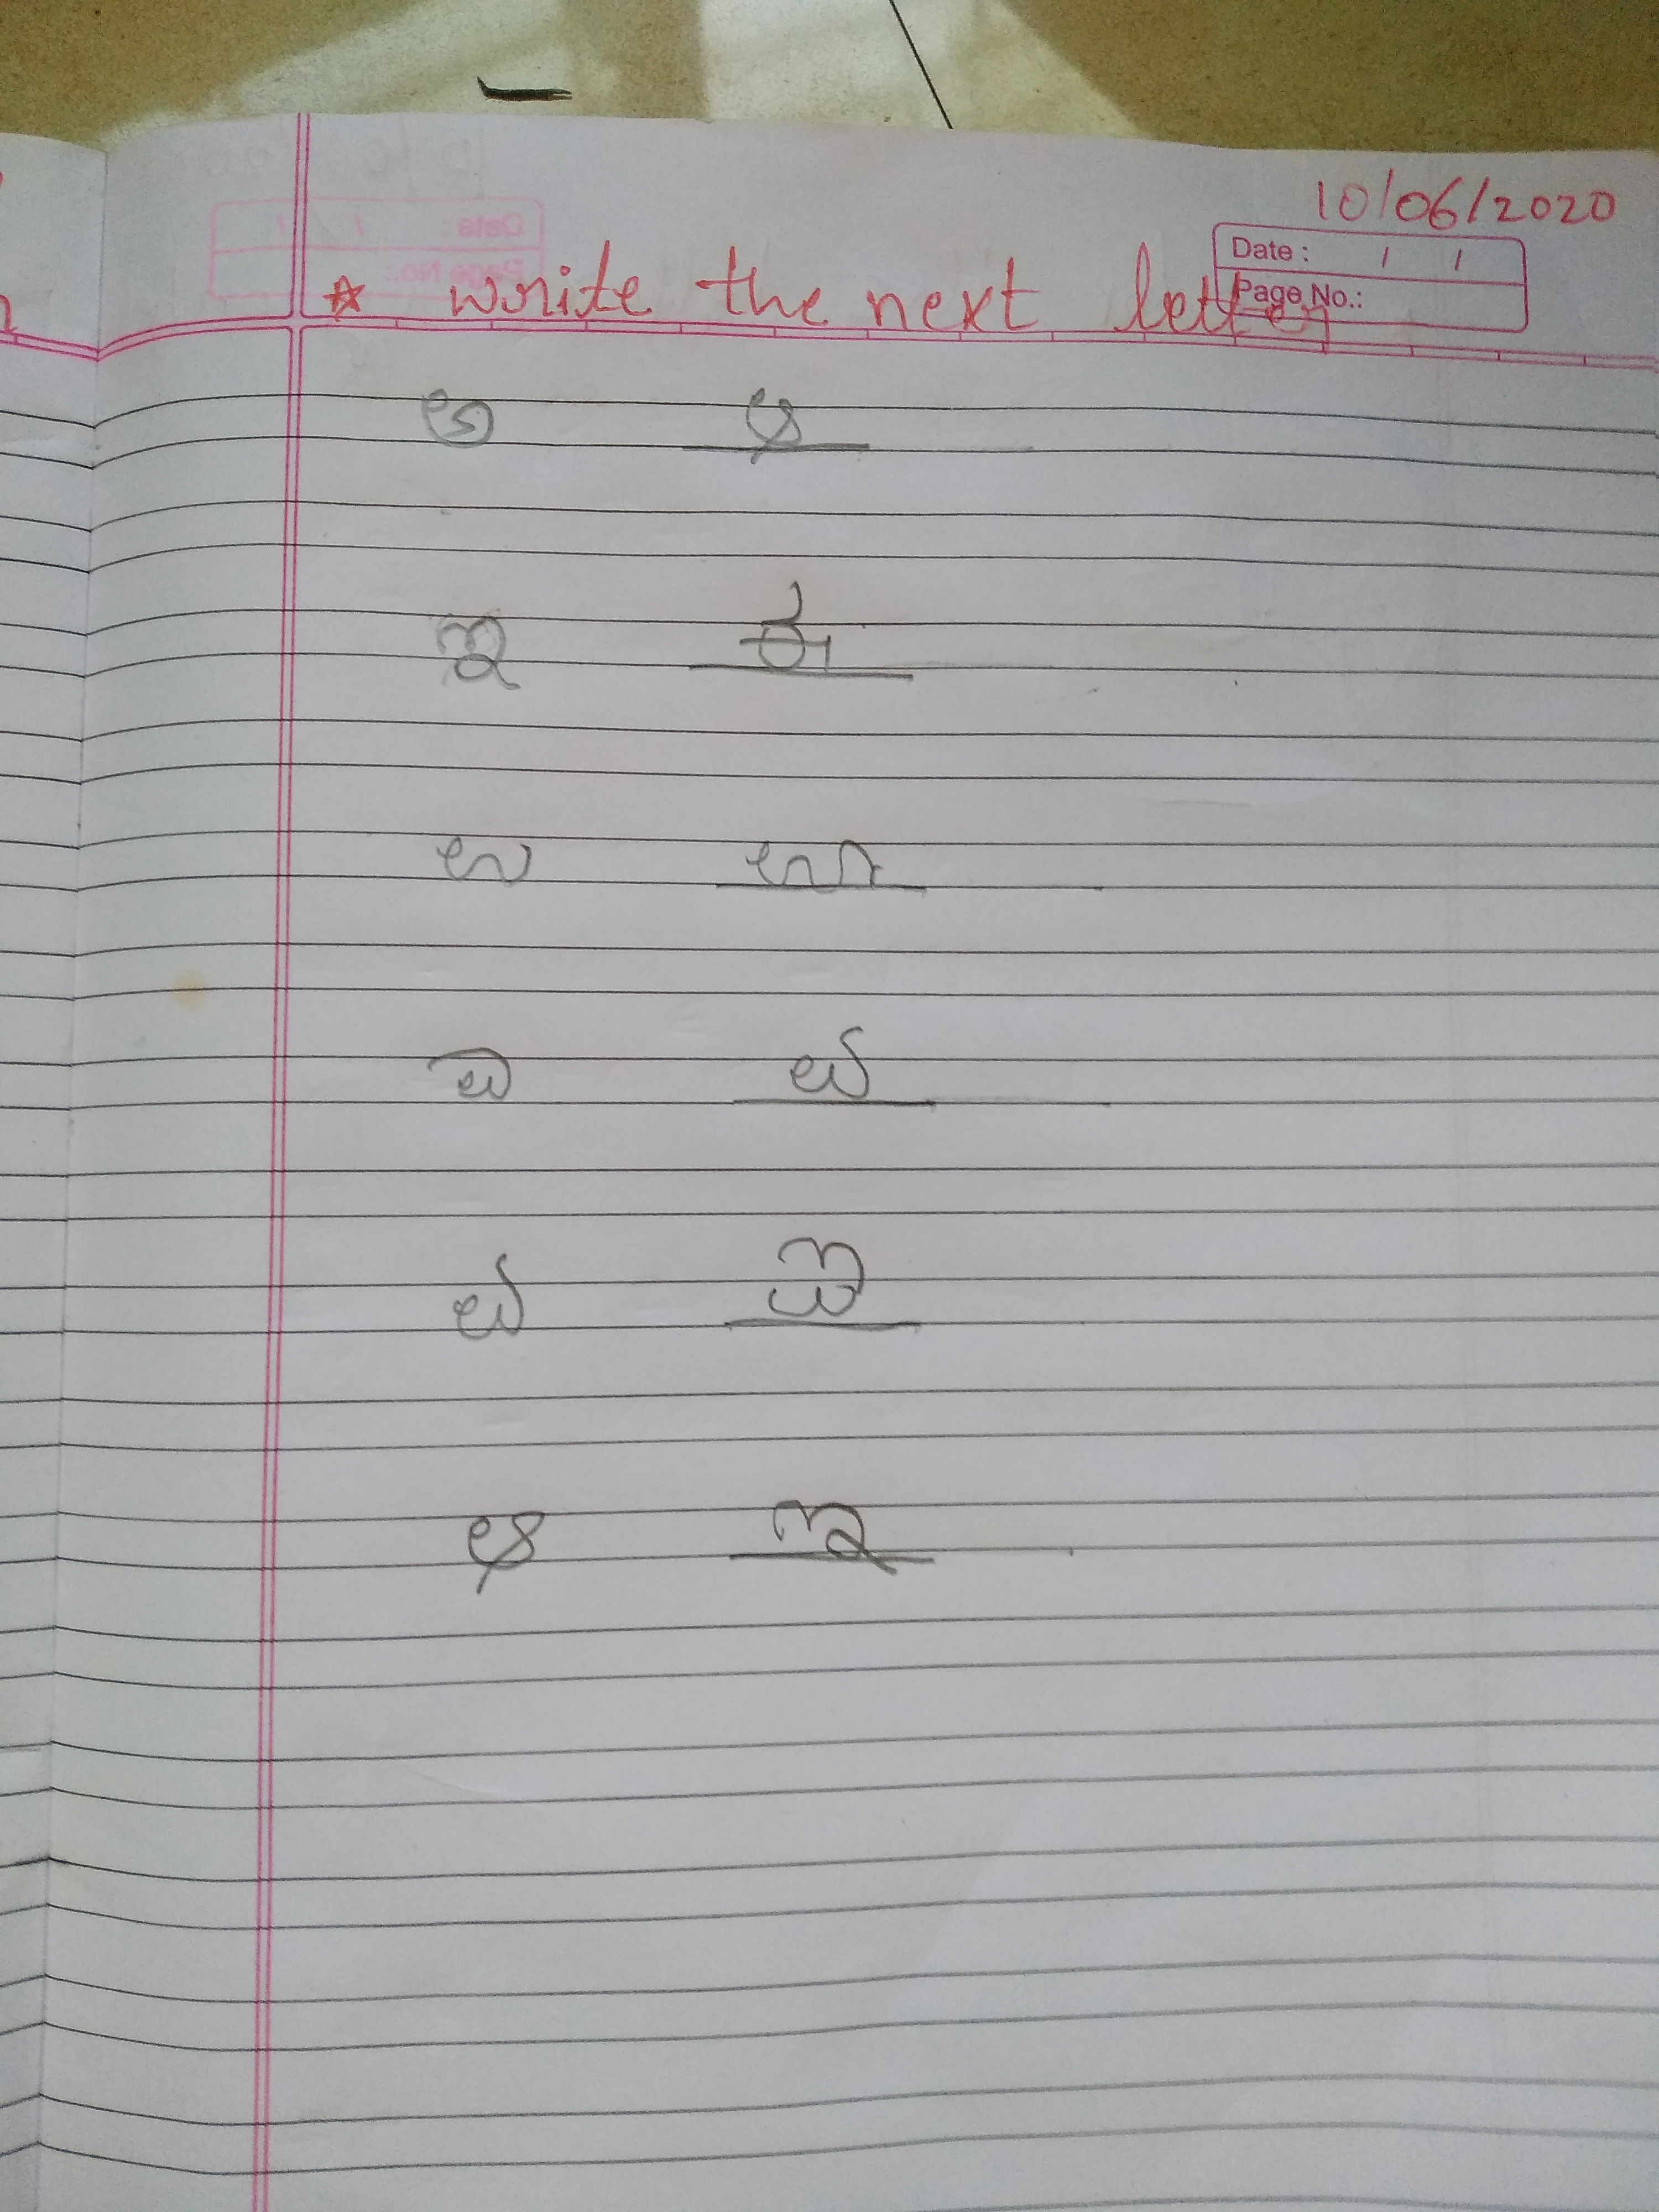 10/06/2020
Date : / /
Page No.:
☆ write the next letter
ಅ ಆ
ಇ ಈ
ಉ ಊ
ಎ ಏ
ಏ ಐ
ಆ ಇ